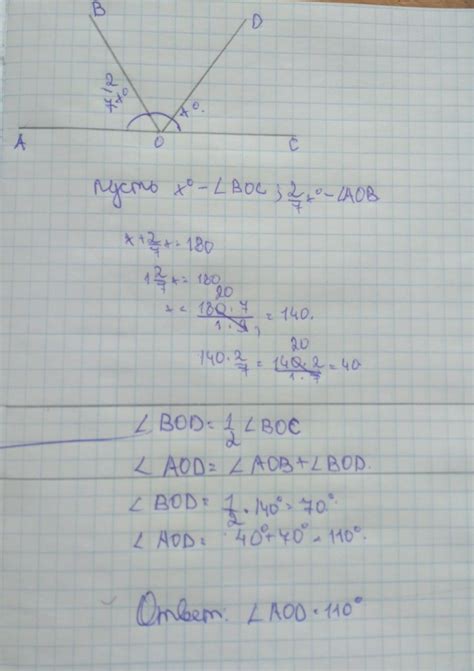 B
D
2/7 x°
x°.
A O C
пусть x° - ∠BOC ; 2/7 x° - ∠AOB
x + 2/7 x = 180
1 2/7 x = 180
20
x = 180 · 7 / 1 · 9 = 140.
20
140 · 2/7 = 140 · 2 / 1 · 7 = 40
∠ BOD = 1/2 ∠ BOC
∠ AOD = ∠ AOB + ∠ BOD.
∠ BOD = 1/2 · 140° = 70°
∠ AOD = 40° + 70° = 110°.
Ответ: ∠ AOD = 110°